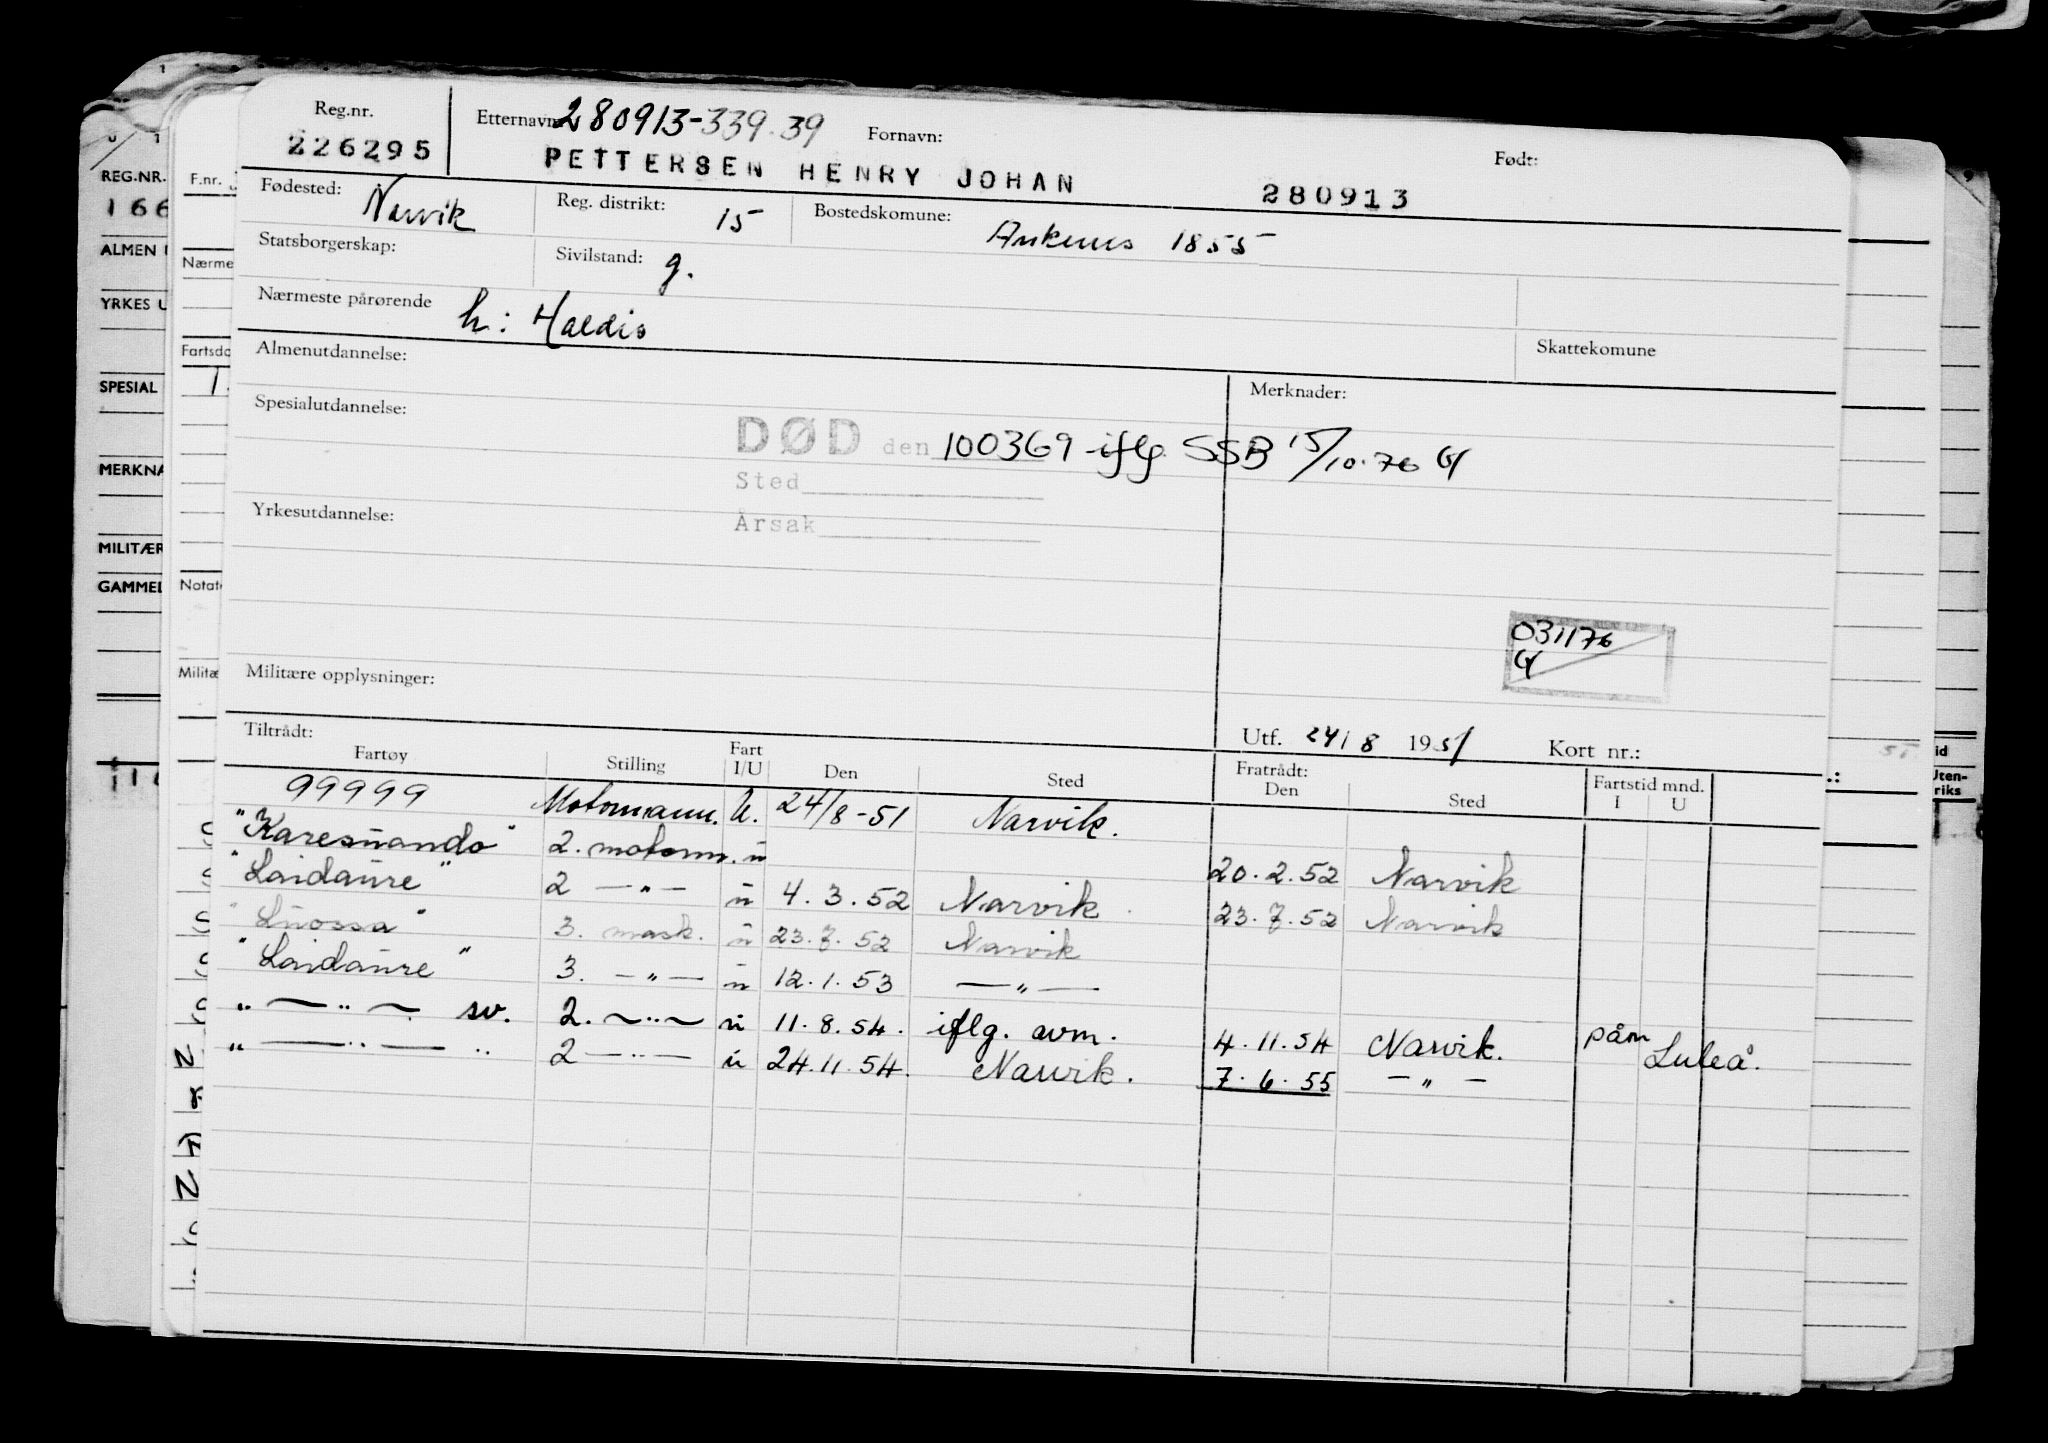 Reg.nr. Etternavn: 280913-339.39 Fornavn: Født:
226295 PETTERSEN HENRY JOHAN 280913
Fødested: Narvik Reg. distrikt: 15 Bostedskomune: Ankenes 1855
Statsborgerskap: Sivilstand: g.
Nærmeste pårørende h: Haldis
Almenutdannelse: Skattekomune
Spesialutdannelse: Merknader:
DØD den 100369 iflg. SSB 15/10.76
Sted
Årsak
Yrkesutdannelse:
031176
Militære opplysninger:
Utf. 24/8 1951 Kort nr.:
Tiltrådt: Fratrådt:
Fartøy Stilling Fart I/U Den Sted Den Sted Fartstid mnd. I U
99999 Motormann. U. 24/8-51 Narvik.
"Karesuando" 2. motorm. u 20.2.52 Narvik
"Laidaure" 2 —"— u 4.3.52 Narvik 23.7.52 Narvik
"Luossa" 3. mask. u 23.7.52 Narvik
"Laidaure" 3. —"— u 12.1.53 —"—
" —"— sv. 2. —"— u 11.8.54. iflg. avm. 4.11.54 Narvik. påm Luleå.
" —"— " 2 —"— u 24.11.54. Narvik. 7.6.55 —"—
REG.NR.
166
ALMEN
YRKES U
SPESIAL
MERKNA
MILITÆR
GAMMEL
F.nr.
Nærme
Fartsdo
Notat
Militæ